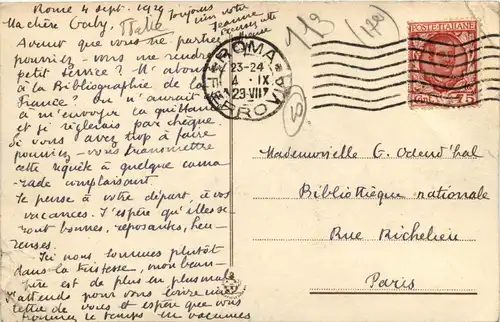 Rome 4 sept. 1929
Ma chère Gaby,
Italie
Toujours
Jeanne
Avant que vous ne partiez
pourriez-vous me rendre
petit service? M'abonner
à la Bibliographie de la
France? On n'aurait
à m'envoyer la quittance
et je règlerais par chèque.
Si vous avez trop à faire
pourriez-vous transmettre
cette requête à quelque cama-
rade complaisant.
Je pense à votre départ, à vos
vacances. J'espère qu'elles se-
ront bonnes, reposantes, heu-
reuses.
Ici nous sommes plutôt
dans la tristesse, mon beau-
père est de plus en plus mal.
J'attends pour vous écrire une
lettre de vous et espère que vous
le temps en vacances
113
ROMA
23-24
4 IX
FERROVIA
POSTE ITALIANE
75
Mademoiselle G. Odend'hal
Bibliothèque nationale
Rue Richelieu
Paris